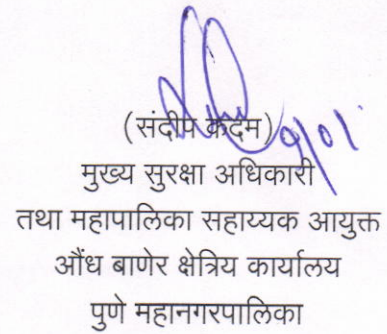 (संदीप कदम)
मुख्य सुरक्षा अधिकारी
तथा महापालिका सहाय्यक आयुक्त
औंध बाणेर क्षेत्रिय कार्यालय
पुणे महानगरपालिका